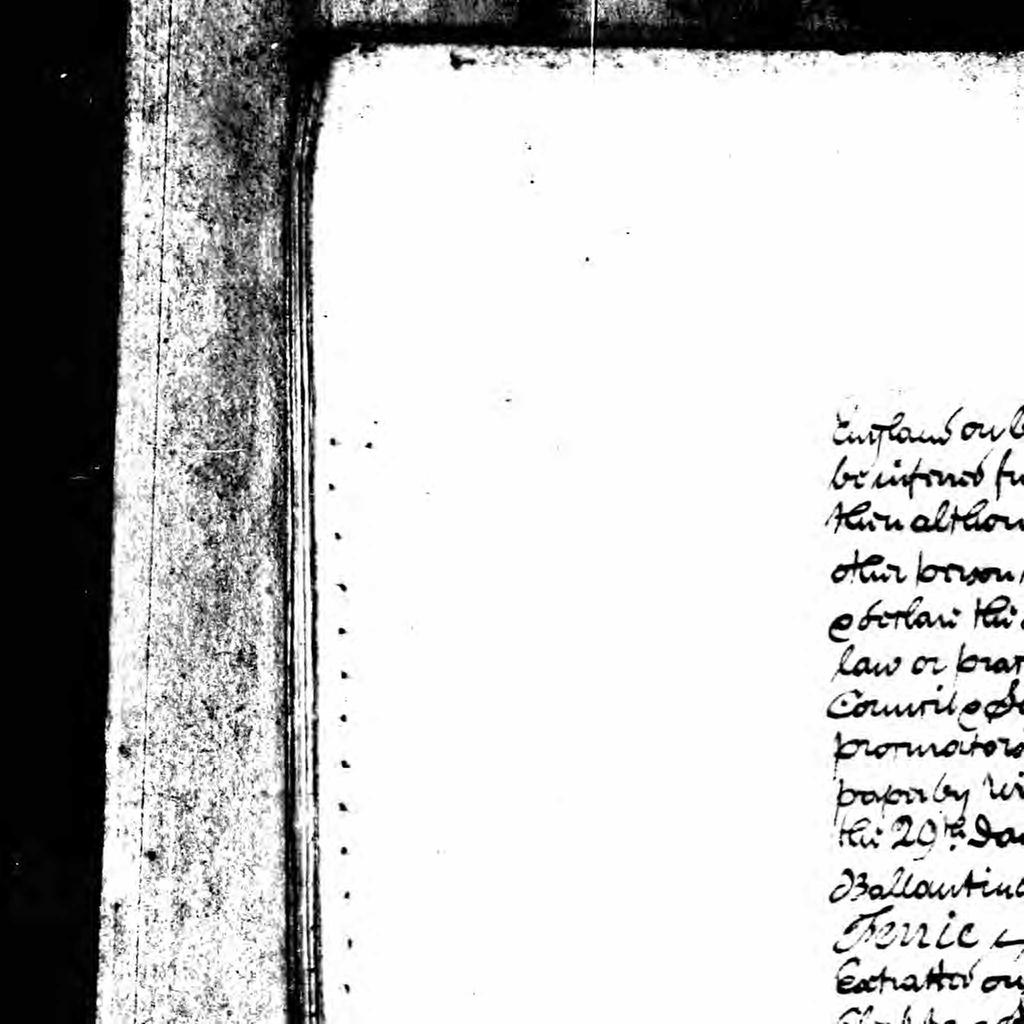 England on b
be inferred fu
then althou
other person
& declare the
law or prac
Council & Se
procurators
paper by Wi
the 29th Day
Ballantine
Ferrie
Extracted on